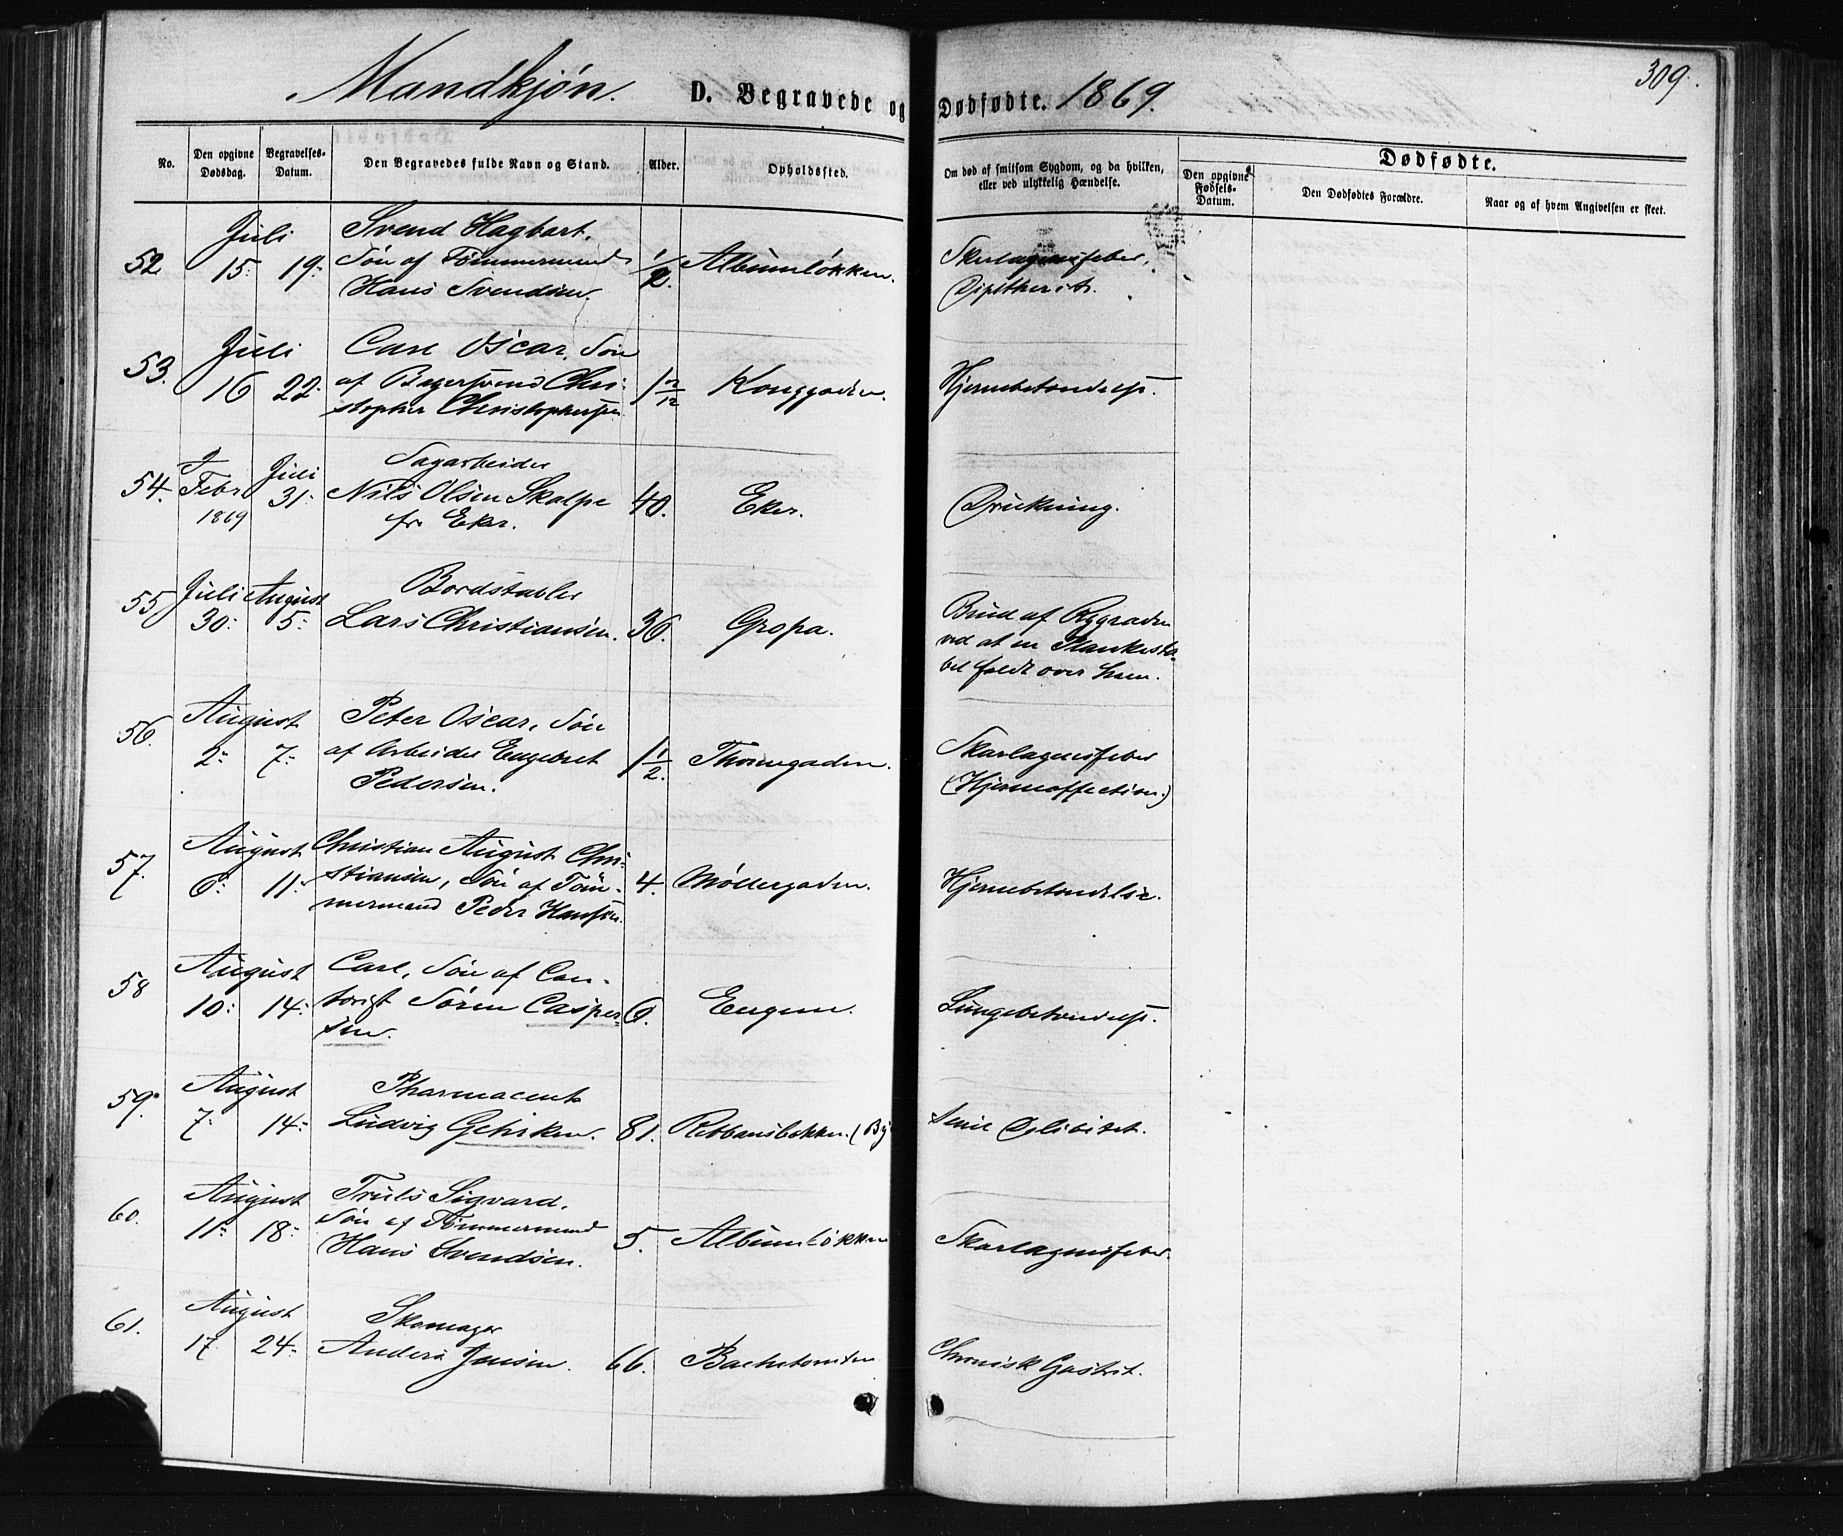 Mandkjøn. D. Begravede og Dødfødte. 1869. 309.
No. Den opgivne Dødsdag. Begravelses-Datum. Den Begravedes fulde Navn og Stand. Alder. Opholdssted. Om død af smitsom Sygdom, og da hvilken, eller ved ulykkelig Hændelse. Dødfødte.
Den opgivne Fødsels-Datum. Den Dødfødtes Forældre. Naar og af hvem Angivelsen er skeet.
Juli Svend Hagbart,
52 15. 19. Søn af Tømmermand 1/2. Albumløkken. Skarlagensfeber,
Hans Svendsen. Diptherit.
Juli Carl Oscar, Søn
53. 16 22. af Bagersvend Chri- 1 2/12 Konggaden. Hjernebetændelse.
stopher Christophersen
2 Juli Sagarbeider
54. Febr 31. Nils Olsen Skalpe 40. Eker. Drukning.
1869 fr. Eker.
Juli August Bordstabler Brud af Rygraden
55 30. 5. Lars Christiansen. 36. Gropa. ved at en Plankesta-
bel faldt over ham.
August Peter Oscar, Søn
56. 2. 7. af Arbeider Engebret 1 1/2. Thomegaden. Skarlagensfeber
Pedersen. (Hjerneaffection.)
August Christian August Chri-
57. 6. 11. stiansen, Søn af Töm- 4. Møllergaden. Hjernebetændelse.
mermand Peder Hansen.
August Carl, Søn af Con-
58 10. 14. torist Sören Casper- 6. Engen. Lungebetændelse.
sen.
August Pharmaceut
59. 7. 14. Ludvig Gehrken. 81. (By Senil Debilitet.
August Truls Sigvard,
60. 11. 18. Søn af Tømmermand 5. Albumløkken Skarlagensfeber.
Hans Svendsen.
August Skomager
61. 17 24. Anders Jensen. 66. Bachetomten Chronisk Gastrit.